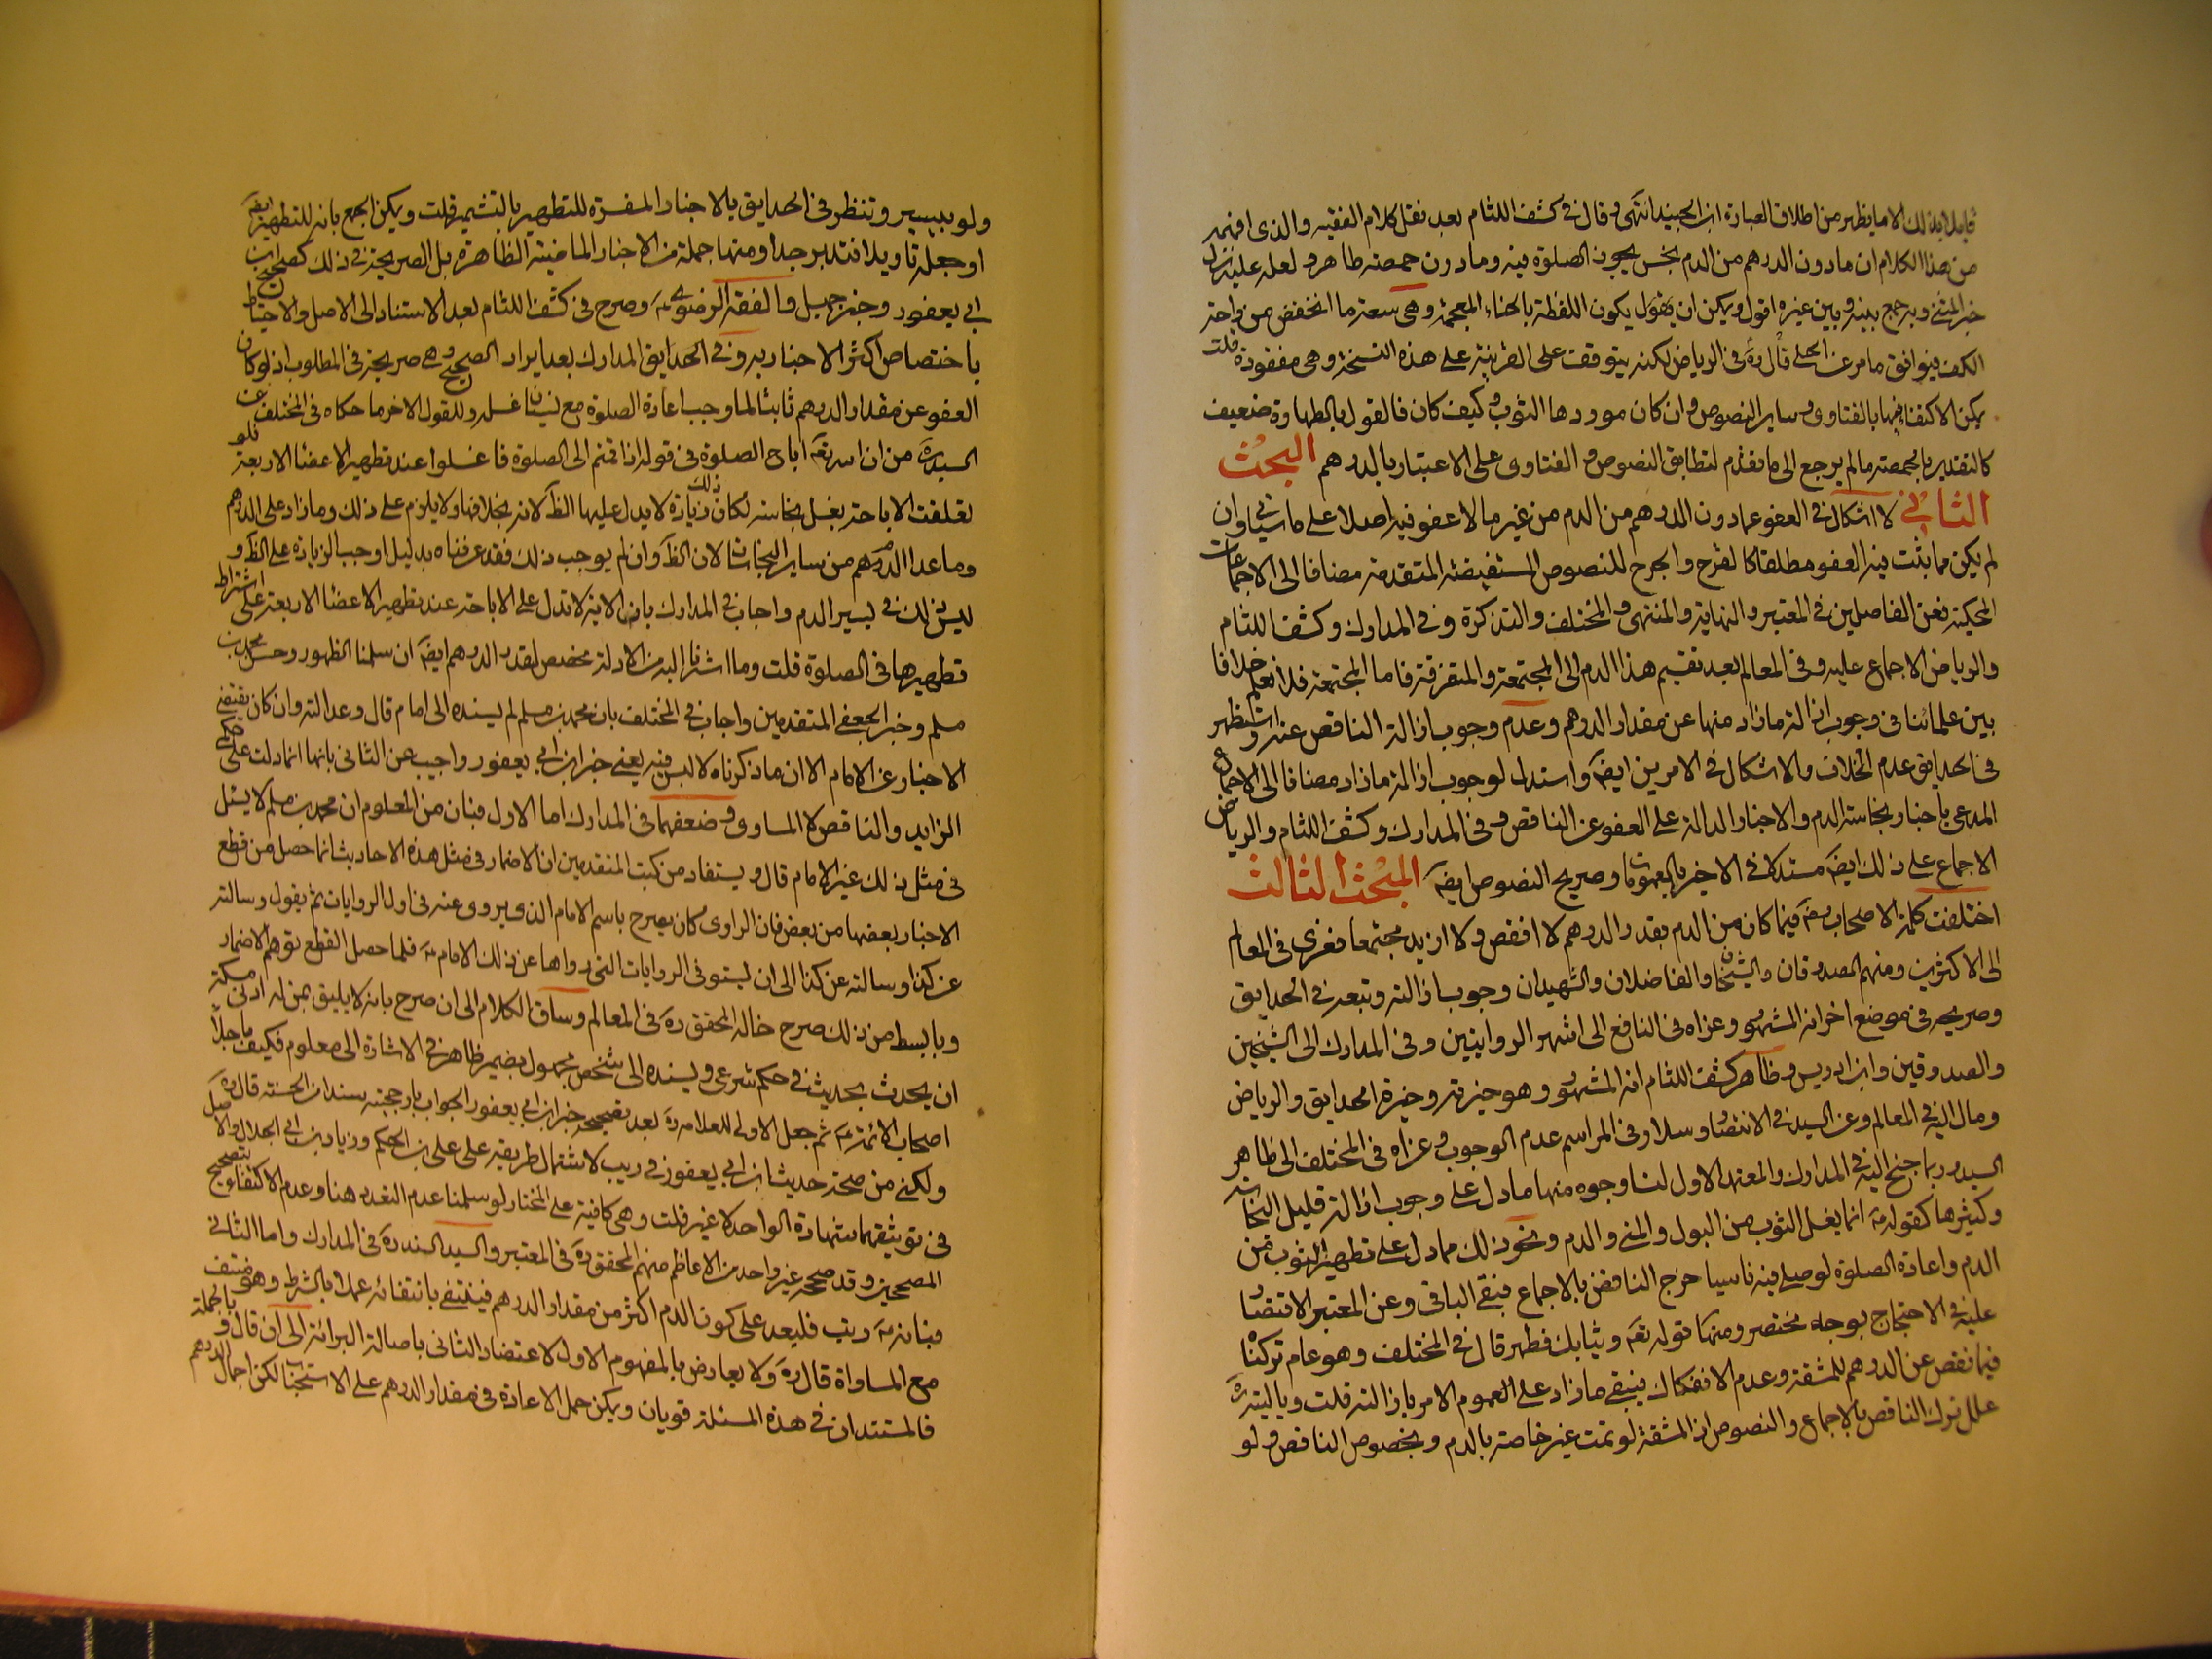 قايلا بذلك الا ما يظهر من اطلاق العبارة ابن الجنيد انتهى وقال في كشف اللثام بعد نقل كلام الفقيه والذي افهمه
من هذا الكلام ان ما دون الدرهم من الدم نجس يجوز الصلوة فيه وما دون حمصته طاهر ولعله عليه نزل
خبر المثنى وبه جمع بينه وبين غيره اقول ويمكن ان يقول يكون اللفظة بالخاء المعجمة وهي سعة ما انخفض من راحة
الكف فيوافق ما مر عن الحلي قال ره في الرياض لكنه يتوقف على القرينة على هذه النسخة وهي مفقودة قلت
يمكن الاكتفاء فيها بالفتاوى وساير النصوص وان كان موردها الثوب وكيف كان فالقول بالطهارة ضعيف
كالتقدير بالحمصة ما لم يرجع الى ما تقدم لتطابق النصوص و الفتاوى على الاعتبار بالدرهم البحث
الثاني لا اشكال في العفو عما دون الدرهم من الدم من غير ما لا عفو فيه اصلا على ما سياتي وان
لم يكن مما يثبت فيه العفو مطلقا كالقرح والجرح للنصوص المستفيضة المتقدمة مضافا الى الاجماعات
المحكية فعن الفاضلين في المعتبر والنهاية والمنتهى والمختلف والتذكرة وفي المدارك وكشف اللثام
والرياض الاجماع عليه وفي المعالم بعد تقسيم هذا الدم الى المجتمعة والمتفرقة فاما المجتمعة فلا نعلم خلافا
بين علمائنا في وجوب ازالة ما زاد منها عن مقدار الدرهم وعدم وجوب ازالة الناقص عنه واستظهر
في الحدايق عدم الخلاف والاشكال في الامرين ايضا واستدل لوجوب ازالة ما زاد مضافا الى الاجماع
المدعى باخبار نجاسة الدم والاخبار الدالة على العفو عن الناقص و في المدارك وكشف اللثام والرياض
الاجماع على ذلك ايضا مستدلا في الاخير بالعمومات وصريح النصوص ايضا المبحث الثالث
اختلفت كلمة الاصحاب رضه فيما كان من الدم بقدر الدرهم لا انقص ولا ازيد مجتمعا فعزى في المعالم
الى الاكثرين ومنهم الصدوقان والشيخان والفاضلان والشهيدان وجوب ازالته وتبعه في الحدايق
وصريحه في موضع اخر انه المشهور وعزاه في النافع الى اشهر الروايتين وفي المدارك الى الشيخين
والصدوقين وابن ادريس وظاهر كشف اللثام انه المشهور وهو خيرته وخيرة الحدايق والرياض
ومال اليه في المعالم وعن السيد في الانتصار وسلار في المراسم عدم الوجوب وعزاه في المختلف الى ظاهر
السيد وربما جنح اليه في المدارك والمعتمد الاول لنا وجوه منها ما دل على وجوب ازالة قليل النجاسة
وكثيرها كقوله ع انما يغسل الثوب من البول والمني والدم ونحو ذلك مما دل على تطهير الثوب من
الدم واعادة الصلوة لو صلي فيه ناسيا خرج الناقص بالاجماع فبقي الباقي وعن المعتبر الاقتصار
عليه في الاحتجاج بوجه مختصر ومنها قوله تعه وثيابك فطهر قال في المختلف وهو عام تركناه
فيما نقص عن الدرهم للمشقة وعدم الانفكاك فيبقى ما زاد على العموم الامر بازالته قلت وياليته ره
علل ترك الناقص بالاجماع والنصوص اذ المشقة لو تمت غير خاصة بالدم وبخصوص الناقص ولو
ولو بيسير وتنظر في الحدايق بالاخبار المفسرة للتطهير بالتشمير قلت ويمكن الجمع بانه للتطهير ايضا
او جعله تاويلا فتدبر جدا ومنها جملة من الاخبار الماضية الظاهرة بل الصريحة في ذلك كصحيح ابن
ابي يعفور وخبر جميل والفقه الرضوي ع وصرح في كشف اللثام بعد الاستناد الى الاصل والاحتياط
باختصاص اكثر الاخبار به وفي الحدايق المدارك بعد ايراد الصحيح وهي صريحة في المطلوب اذ لو كان
العفو عن مقدار الدرهم ثابتا لما وجب اعادة الصلوة مع نسيان غسله وللقول الاخر ما حكاه في المختلف عن
السيد ره من ان الله تعه اباح الصلوة في قوله اذا قمتم الى الصلوة فاغسلوا عند تطهير الاعضاء الاربعة فلو
تعلقت الاباحة بغسل نجاسة لكان ذلك زيادة لا يدل عليها الظ لانه بخلافها ولا يلزم على ذلك وما زاد على الدرهم
وما عدا الدم من ساير النجاسات لان الظ وان لم يوجب ذلك فقد عرفناه بدليل اوجب الزيادة على الظ و
ليس ذلك في يسير الدم واجاب في المدارك بان الاية لا تدل على الاباحة عند تطهير الاعضاء الاربعة على اشتراط
تطهيرها في الصلوة قلت وما اشرنا اليه من الادلة مخصص لقدر الدرهم ايضا ان سلمنا الظهور وحسن محمد بن
مسلم وخبر الجعفي المتقدمين واجاب في المختلف بان محمد بن مسلم لم يسنده الى امام قال وعدالته وان كان يقتضي
الاخبار عن الامام الا ان ما ذكرناه لا لبس فيه يعني خبر ابن ابي يعفور واجيب عن الثاني بانها انما دلت على حكم
الزايد والناقص لا المساوي وضعفهما في المدارك اما الاول فبان من المعلوم ان محمد بن مسلم لا يسئل
في مثل ذلك غير الامام قال ويستفاد من كتب المتقدمين ان الاضمار في مثل هذه الاحاديث انما حصل من قطع
الاخبار بعضها من بعض فان الراوي كان يصرح باسم الامام الذي يروي عنه في اول الروايات ثم يقول وسالته
عن كذا وسالته عن كذا الى ان يستوفي الروايات التي رواها عن ذلك الامام ع فلما حصل القطع توهم الاضمار
وبابسط من ذلك صرح خاله المحقق ره في المعالم وساق الكلام الى ان صرح بانه لا يليق بمن له ادنى مسكة
ان يحدث بحديث في حكم شرعي ويسنده الى شخص مجهول بضمير ظاهر في الاشارة الى معلوم فكيف باجلاء
اصحاب الائمة ع ثم جعل الاولى للعلامه ره بعد تصحيحه خبر ابن ابي يعفور الجواب بارجحيته سندا من الحسنة قال ره
ولكن من صحة حديث ابن ابي يعفور في ريب لاشتمال طريقه على علي بن الحكم وزياد بن ابي الحلال والاصل
في توثيقهما شهادة الواحد لا غير قلت وهي كافية على المختار لو سلمنا عدم التعدد هنا وعدم الاكتفاء بتصحيح
المصححين وقد صححه غير واحد من الاعاظم منهم المحقق ره في المعتبر والسيد السند ره في المدارك واما الثاني
فبانه ع رتب فليعد على كون الدم اكثر من مقدار الدرهم فينتفي بانتفائه عملا بالشرط وهو منتف
مع المساواة قال ره ولا يعارض بالمفهوم الاول لاعتضاد الثاني باصالة البرائة الى ان قال و بالجملة
فالمستندان في هذه المسئلة قويان ويمكن حمل الاعادة في مقدار الدرهم على الاستحباب لكن اجمال الدرهم